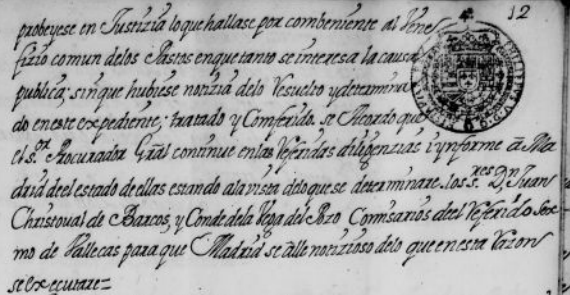 12
probeyese en Justizia lo que hallase por combeniente al Vene-
fizio comun delos Pastos en que tanto se interesa la causa
publica; sin que hubiese notizia delo Resuelto y determina-
do en este expediente; tratado y Comferido. se Acordo que
el s.or Procurador Gral continue en las Referidas diligenzias e ynforme a Ma-
drid de el estado de ellas estando a la vista de lo que se determinare. los s.res D.n Juan
Christoual de Barcos, y Conde dela Vega del Pozo Comisarios de el Referido
mo de Vallecas para que Madrid se alle notizioso delo que en esta Razon
se executare=